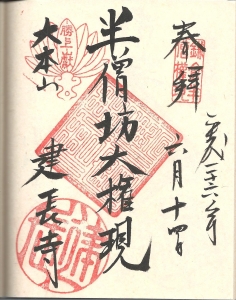 奉拝
平成二十六年
六月十四日
半僧坊大権現
大本山
建長寺
勝上嶽